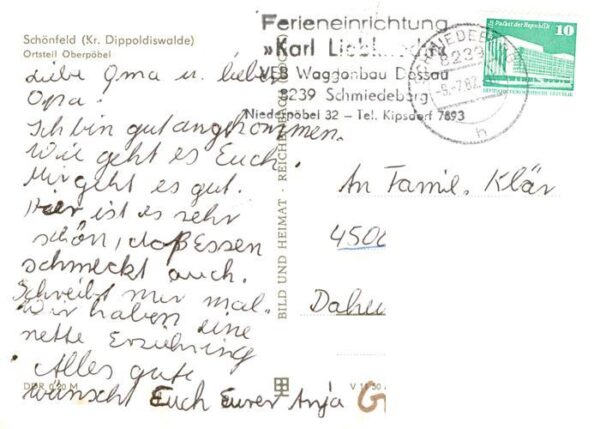 Schönfeld (Kr. Dippoldiswalde)
Ortsteil Oberpöbel
Ferieneinrichtung
»Karl Liebknecht«
VEB Waggonbau Dessau
8239 Schmiedeberg
Niederpöbel 32 – Tel. Kipsdorf 7893
SCHMIEDEBERG
8239
-8.-7.82
h
Palast der Republik 10
Liebe Oma u. lieber
Opa!
Ich bin gut angekommen.
Wie geht es Euch.
Mir geht es gut.
Hier ist es sehr
schön, daß Essen
schmeckt auch.
Schreibt mir mal.
Wir haben eine
nette Erziehring
Alles gute
wünscht Euch Eurer Anja
BILD UND HEIMAT · REICHENBACH
An Famil. Klär
4500
DDR 0,20 M
V 11 50